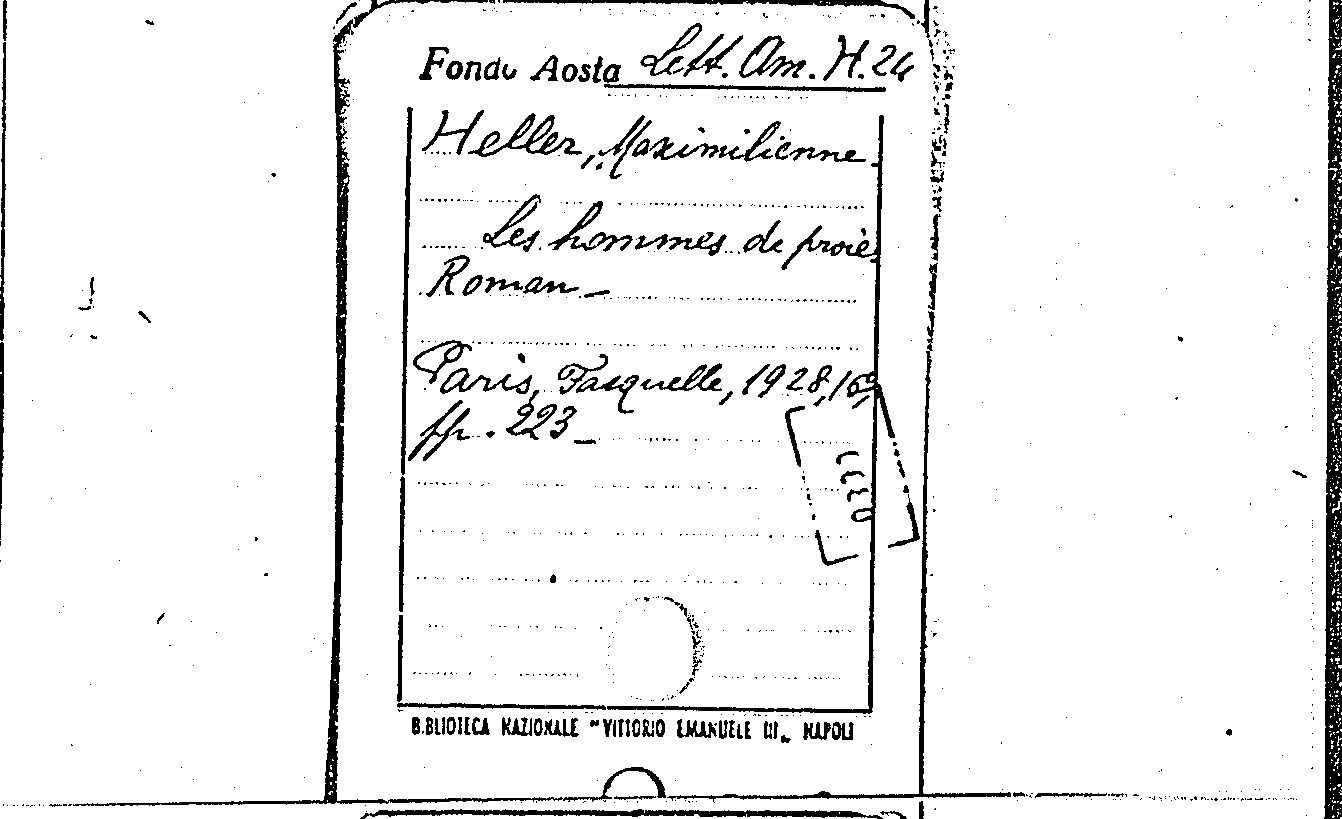 Fondo Aosta Lett. Am. H. 24
Heller, Maximilienne.
Les hommes de proie.
Roman_
Paris, Fasquelle, 1928, 16º,
pp. 223_
BIBLIOTECA NAZIONALE "VITTORIO EMANUELE III„ NAPOLI